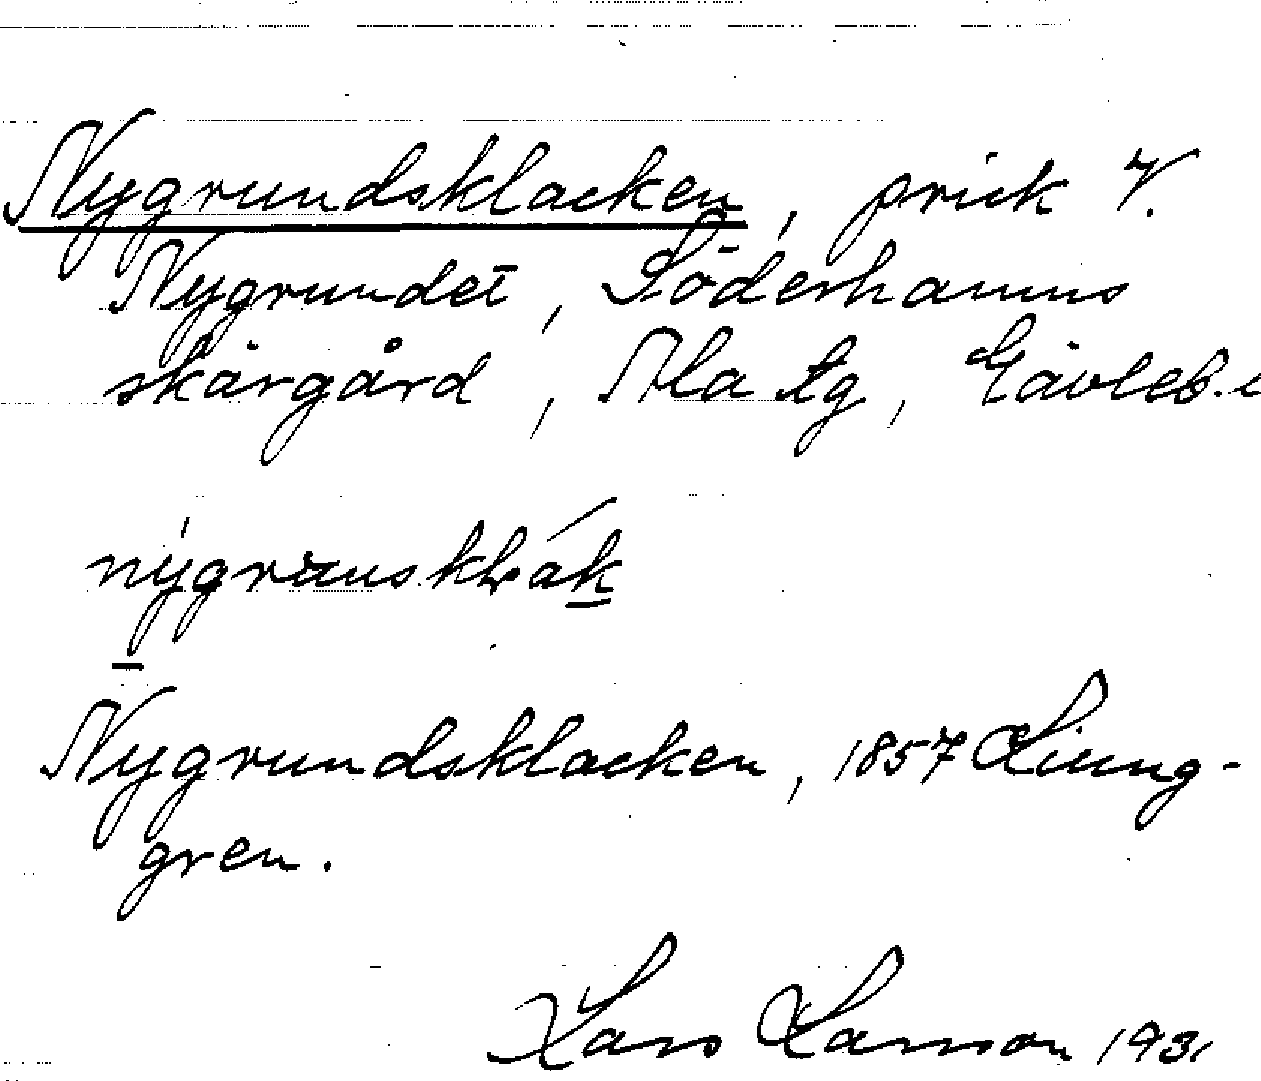 Nygrundsklacken, prick V.
Nygrundet, Söderhamns
skärgård, Ala tg, Gävleb.
Nygrundsklacken, 1857 Ljung-
gren.
Lars Larsson 1931